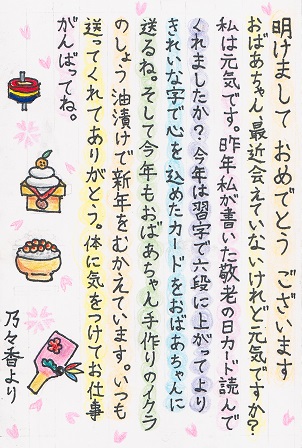 明けまして おめでとう ございます
おばあちゃん 最近会えていないけれど元気ですか?
私は元気です。昨年私が書いた敬老の日カード読んで
くれましたか?今年は習字で六段に上がってより
きれいな字で心を込めたカードをおばあちゃんに
送るね。そして今年もおばあちゃん手作りのイクラ
のしょう油漬けで新年をむかえています。いつも
送ってくれてありがとう。体に気をつけてお仕事
がんばってね。
乃々香より